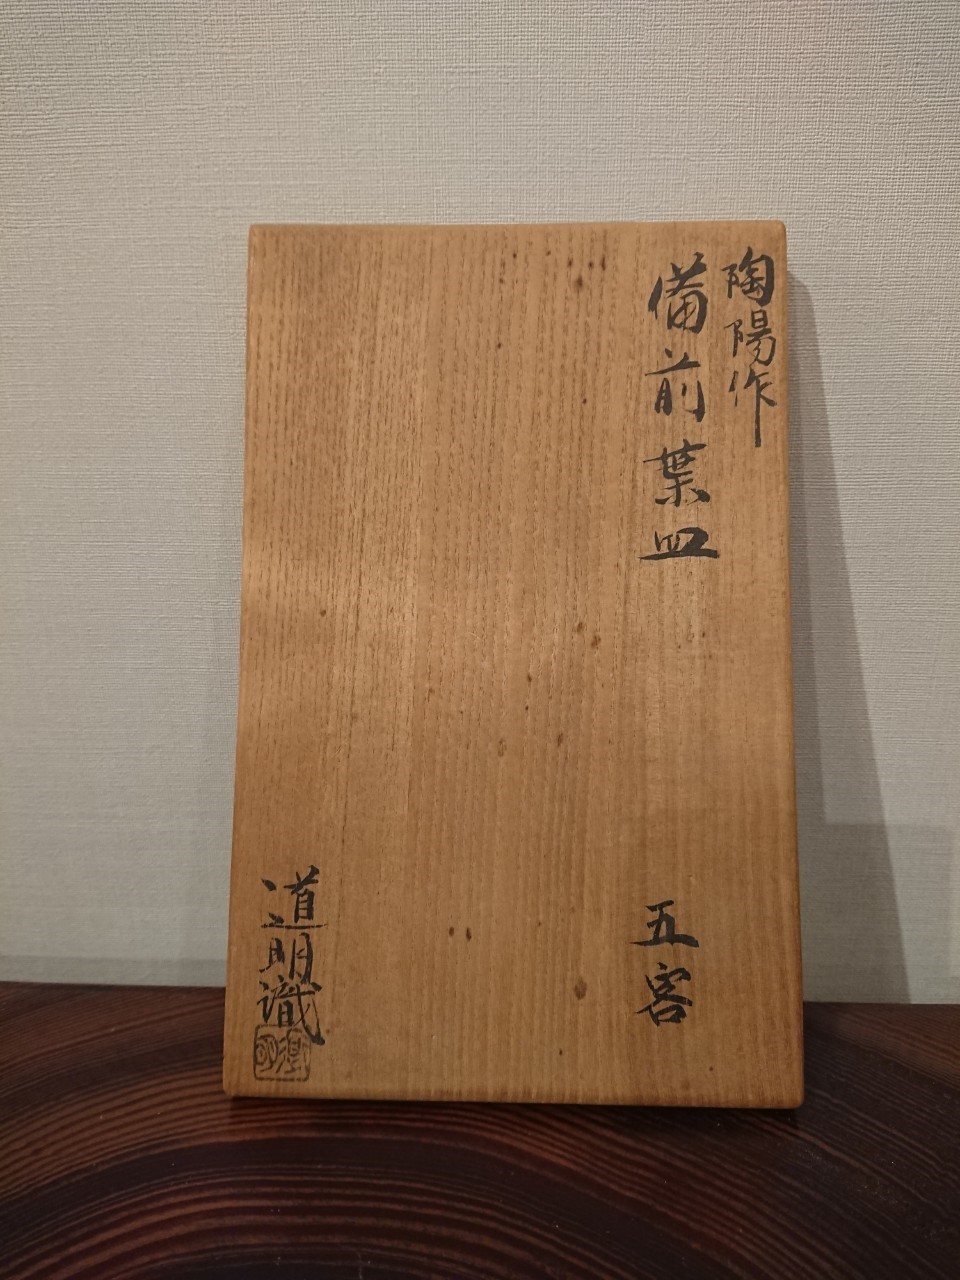 陶陽作
備前葉皿 五客
道明識